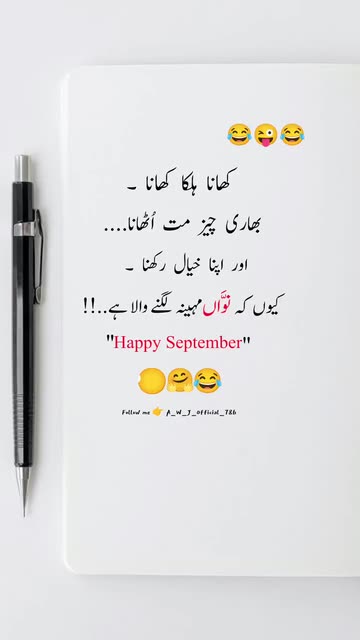 😂😜😂
کھانا ہلکا کھانا ۔
بھاری چیز مت اُٹھانا....
اور اپنا خیال رکھنا ۔
کیوں کہ نوَّاں مہینہ لگنے والا ہے..!!
"Happy September"
🌕🤗😂
Follow me 👉 A_W_J_official_786